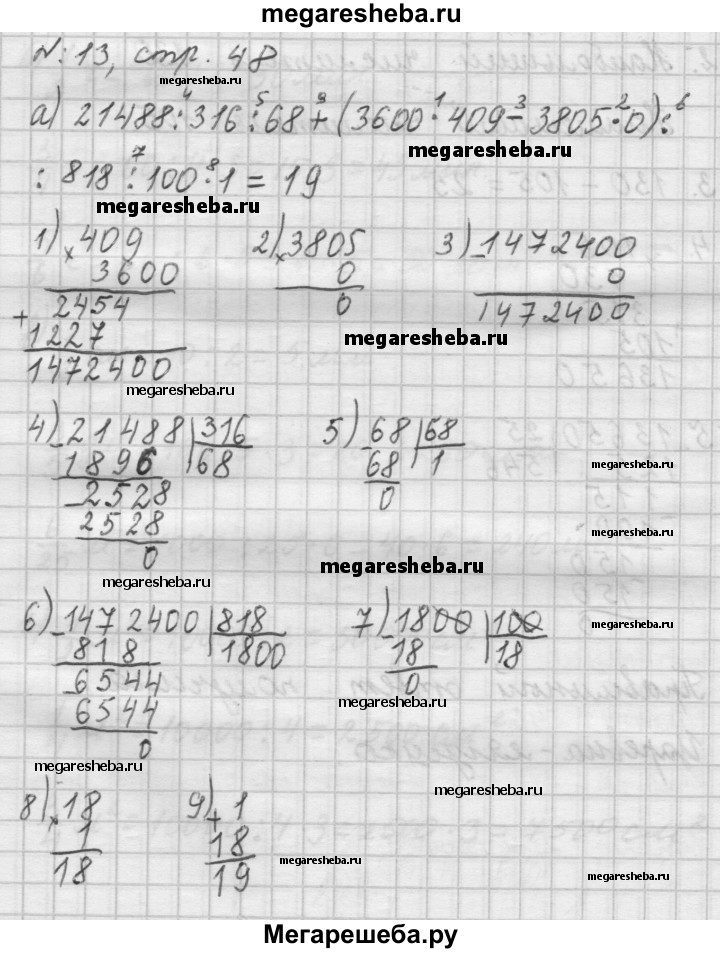 megaresheba.ru
№: 13, стр. 48
megaresheba.ru
4 5 9 1 3 2 6
а) 21488:316:68+(3600·409-3805·0):
megaresheba.ru
7 8
:818:100·1=19
megaresheba.ru
1) ×409 2) ×3805 3) -1472400
3600 0 0
2454 0 1472400
+1227
megaresheba.ru
1472400
megaresheba.ru
4) -21488 |316 5) -68 |68
1896 |68 68 |1
megaresheba.ru
-2528 0
2528
megaresheba.ru
0
megaresheba.ru
megaresheba.ru
6) -1472400 |818 7) -1800 |100
megaresheba.ru
818 |1800 18 |18
-6544 0
megaresheba.ru
6544
0
megaresheba.ru
megaresheba.ru
8) ×18 9) +1
1 18
18 19
megaresheba.ru
megaresheba.ru
Мегарешеба.ру